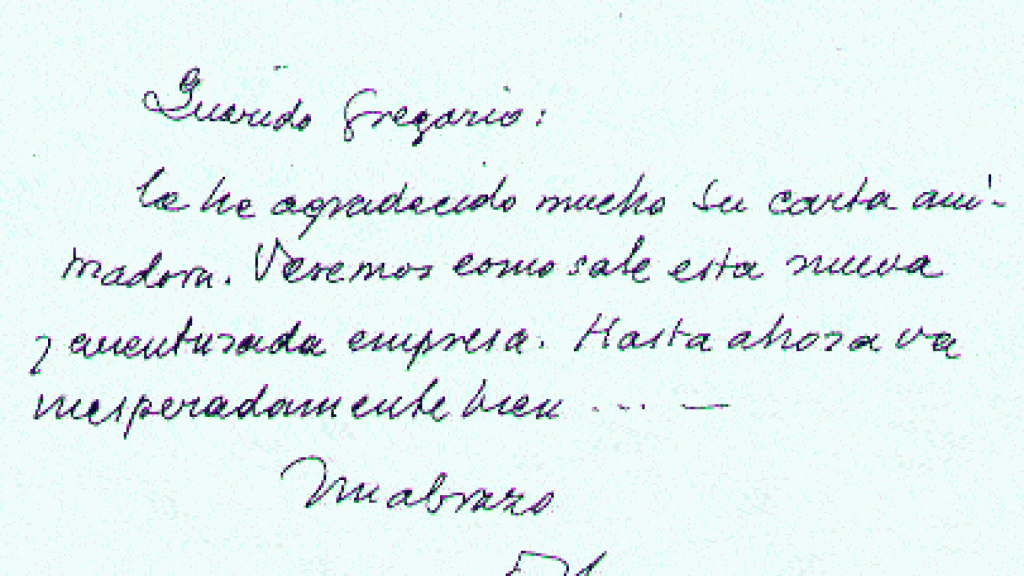 Querido Gregorio:
le he agradecido mucho su carta ani-
madora. Veremos como sale esta nueva
y aventurada empresa. Hasta ahora va
inesperadamente bien ... —
Un abrazo